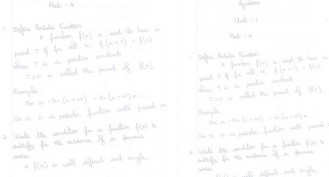 Part - A
1. Define Periodic Function
A function f(x) is said to have a
period T if for all x, f(x+T) = f(x)
where T is a positive constant.
T>0 is called the period of f(x).
Example:
Sin x = Sin (x+2π) = Sin (x+4π)
Sin x is periodic function with period
2. Write the condition for a function f(x) to
satisfy for the existence of a fourier
series
f(x) is well defined and single
Unit - 1
Part - A
1. Define Periodic Function
A function f(x) is said to have a
period T if for all x, f(x+T) = f(x)
where T is a positive constant.
T>0 is called the period of f(x).
Example:
Sin x = Sin (x+2π) = Sin (x+4π)
Sin x is periodic function with period
2. Write the condition for a function f(x) to
satisfy for the existence of a fourier
series
f(x) is well defined and single